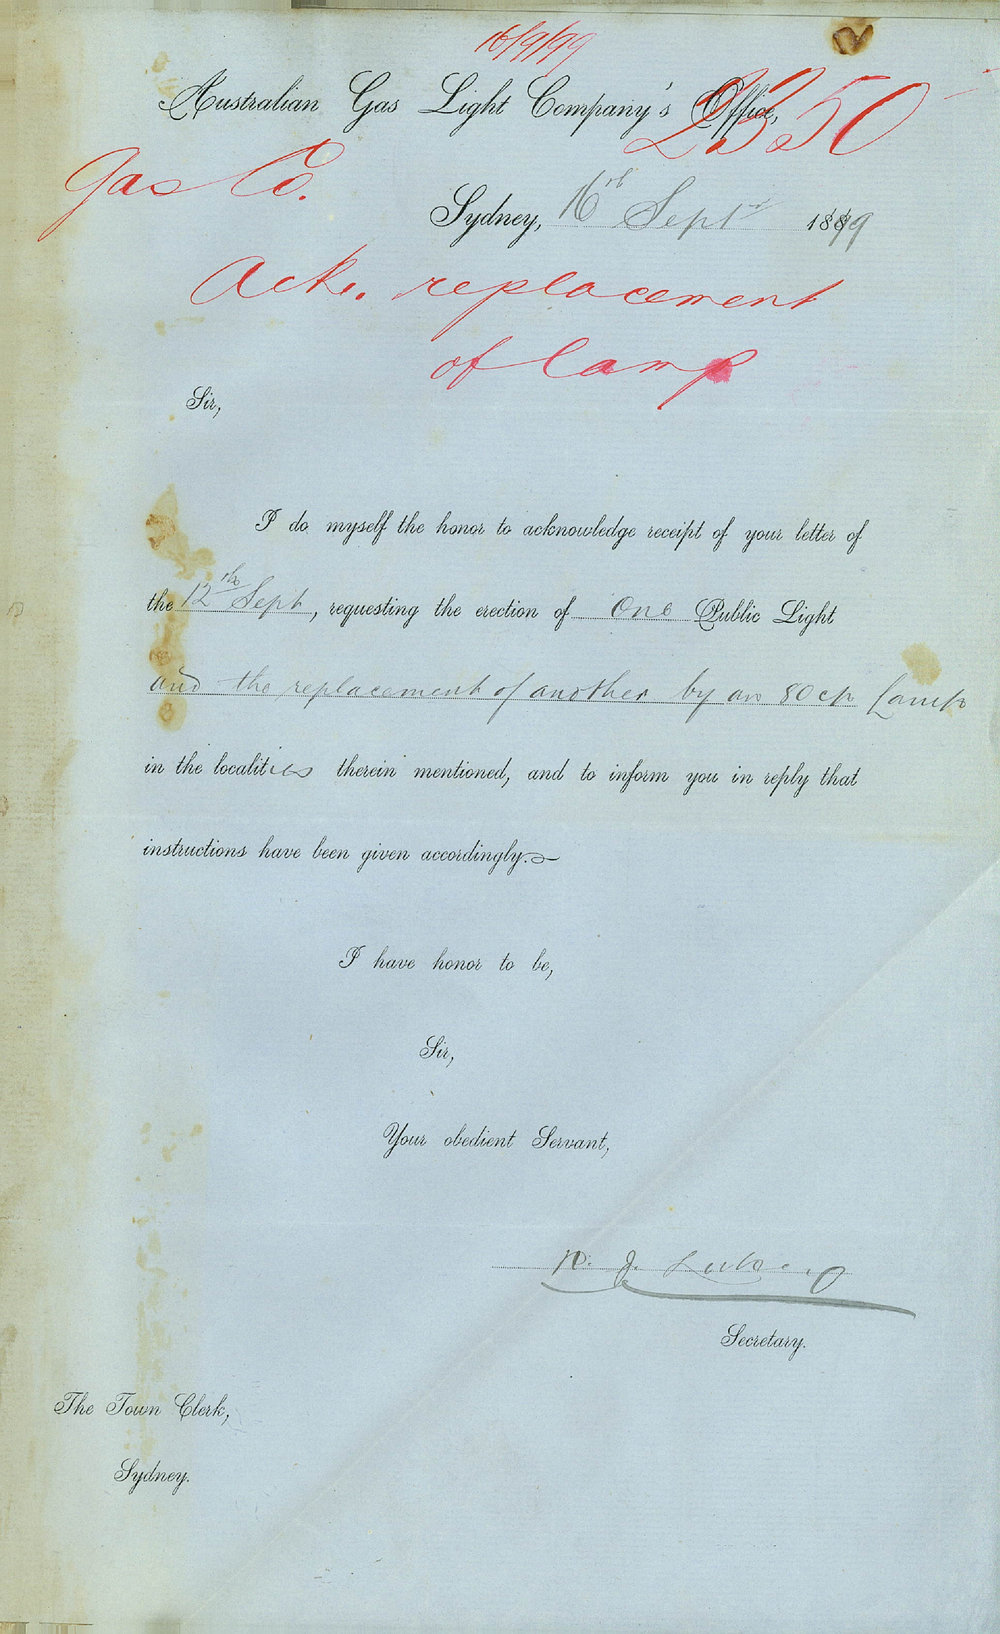 16/9/99
Australian Gas Light Company's Office,
2350
Gas Co.
Sydney, 16th Sept 1899
Ack. replacement
of lamp
Sir,
I do myself the honor to acknowledge receipt of your letter of
the 12th Sept, requesting the erection of One Public Light
and the replacement of another by an 80 cp Lamp
in the localities therein mentioned, and to inform you in reply that
instructions have been given accordingly.
I have honor to be,
Sir,
Your obedient Servant,
R. J.
Secretary.
The Town Clerk,
Sydney.